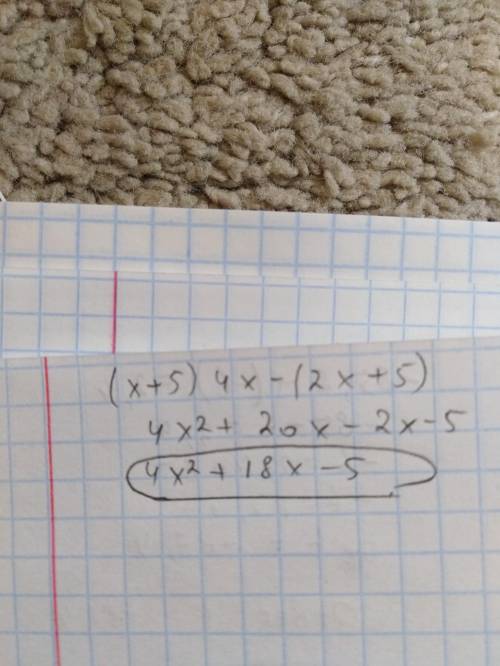 (x+5) 4x-(2x+5)
4x²+ 20x-2x-5
4x²+18x-5